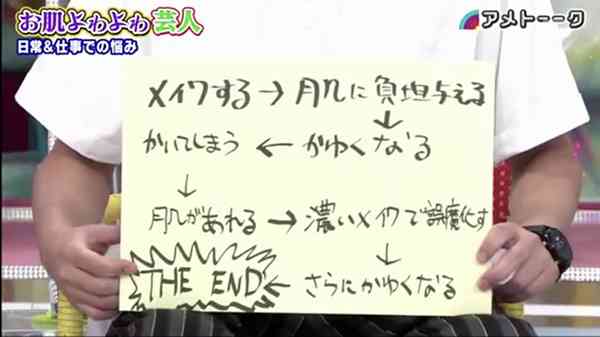 お肌よわよわ芸人
日常&仕事での悩み
アメトーーク
メイクする→肌に負担与える
↓
かいてしまう ← かゆくなる
↓
肌があれる → 濃いメイクで誤魔化す
↓
THE END ← さらにかゆくなる